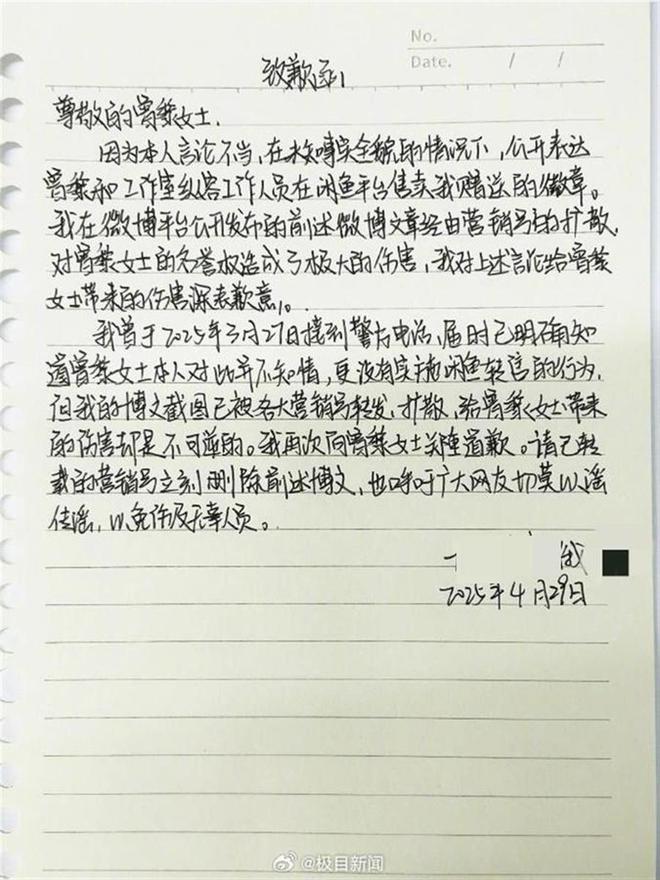 No.
Date. / /
致歉函
尊敬的曾黎女士.
因为本人言论不当,在未嘚实全貌的情况下,公开表达
曾黎和工作室纵容工作人员在闲鱼平台售卖我赠送的徽章。
我在微博平台公开发布的前述微博文章经由营销号的扩散,
对曾黎女士的名誉权造成了极大的伤害,我对上述言论给曾黎
女士带来的伤害深表歉意。
我曾于2025年3月27日接到警方电话,届时已明确知
道曾黎女士本人对此并不知情,更没有实施闲鱼转售的行为,
但我的博文截图已被各大营销号转发,扩散,给曾黎女士带来
的伤害却是不可逆的。我再次向曾黎女士郑重道歉。请已转
载的营销号立刻删除前述博文,也呼吁广大网友切莫以谣
传谣,以免伤及无辜人员。
2025年4月29日
@极目新闻